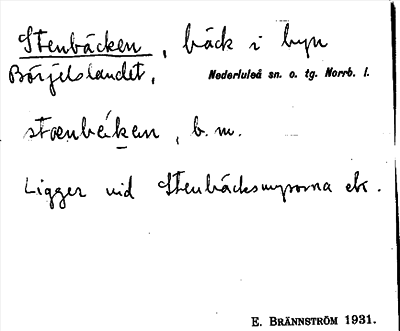 Stenbäcken, bäck i byn
Börjelslandet, Nederluleå sn. o. tg. Norrb. l.
b. m.
Ligger vid Stenbäcksmyrorna
E. BRÄNNSTRÖM 1931.